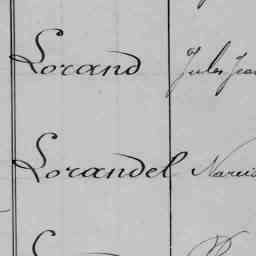 Lorand Jules Jea
Lorandel Narcis